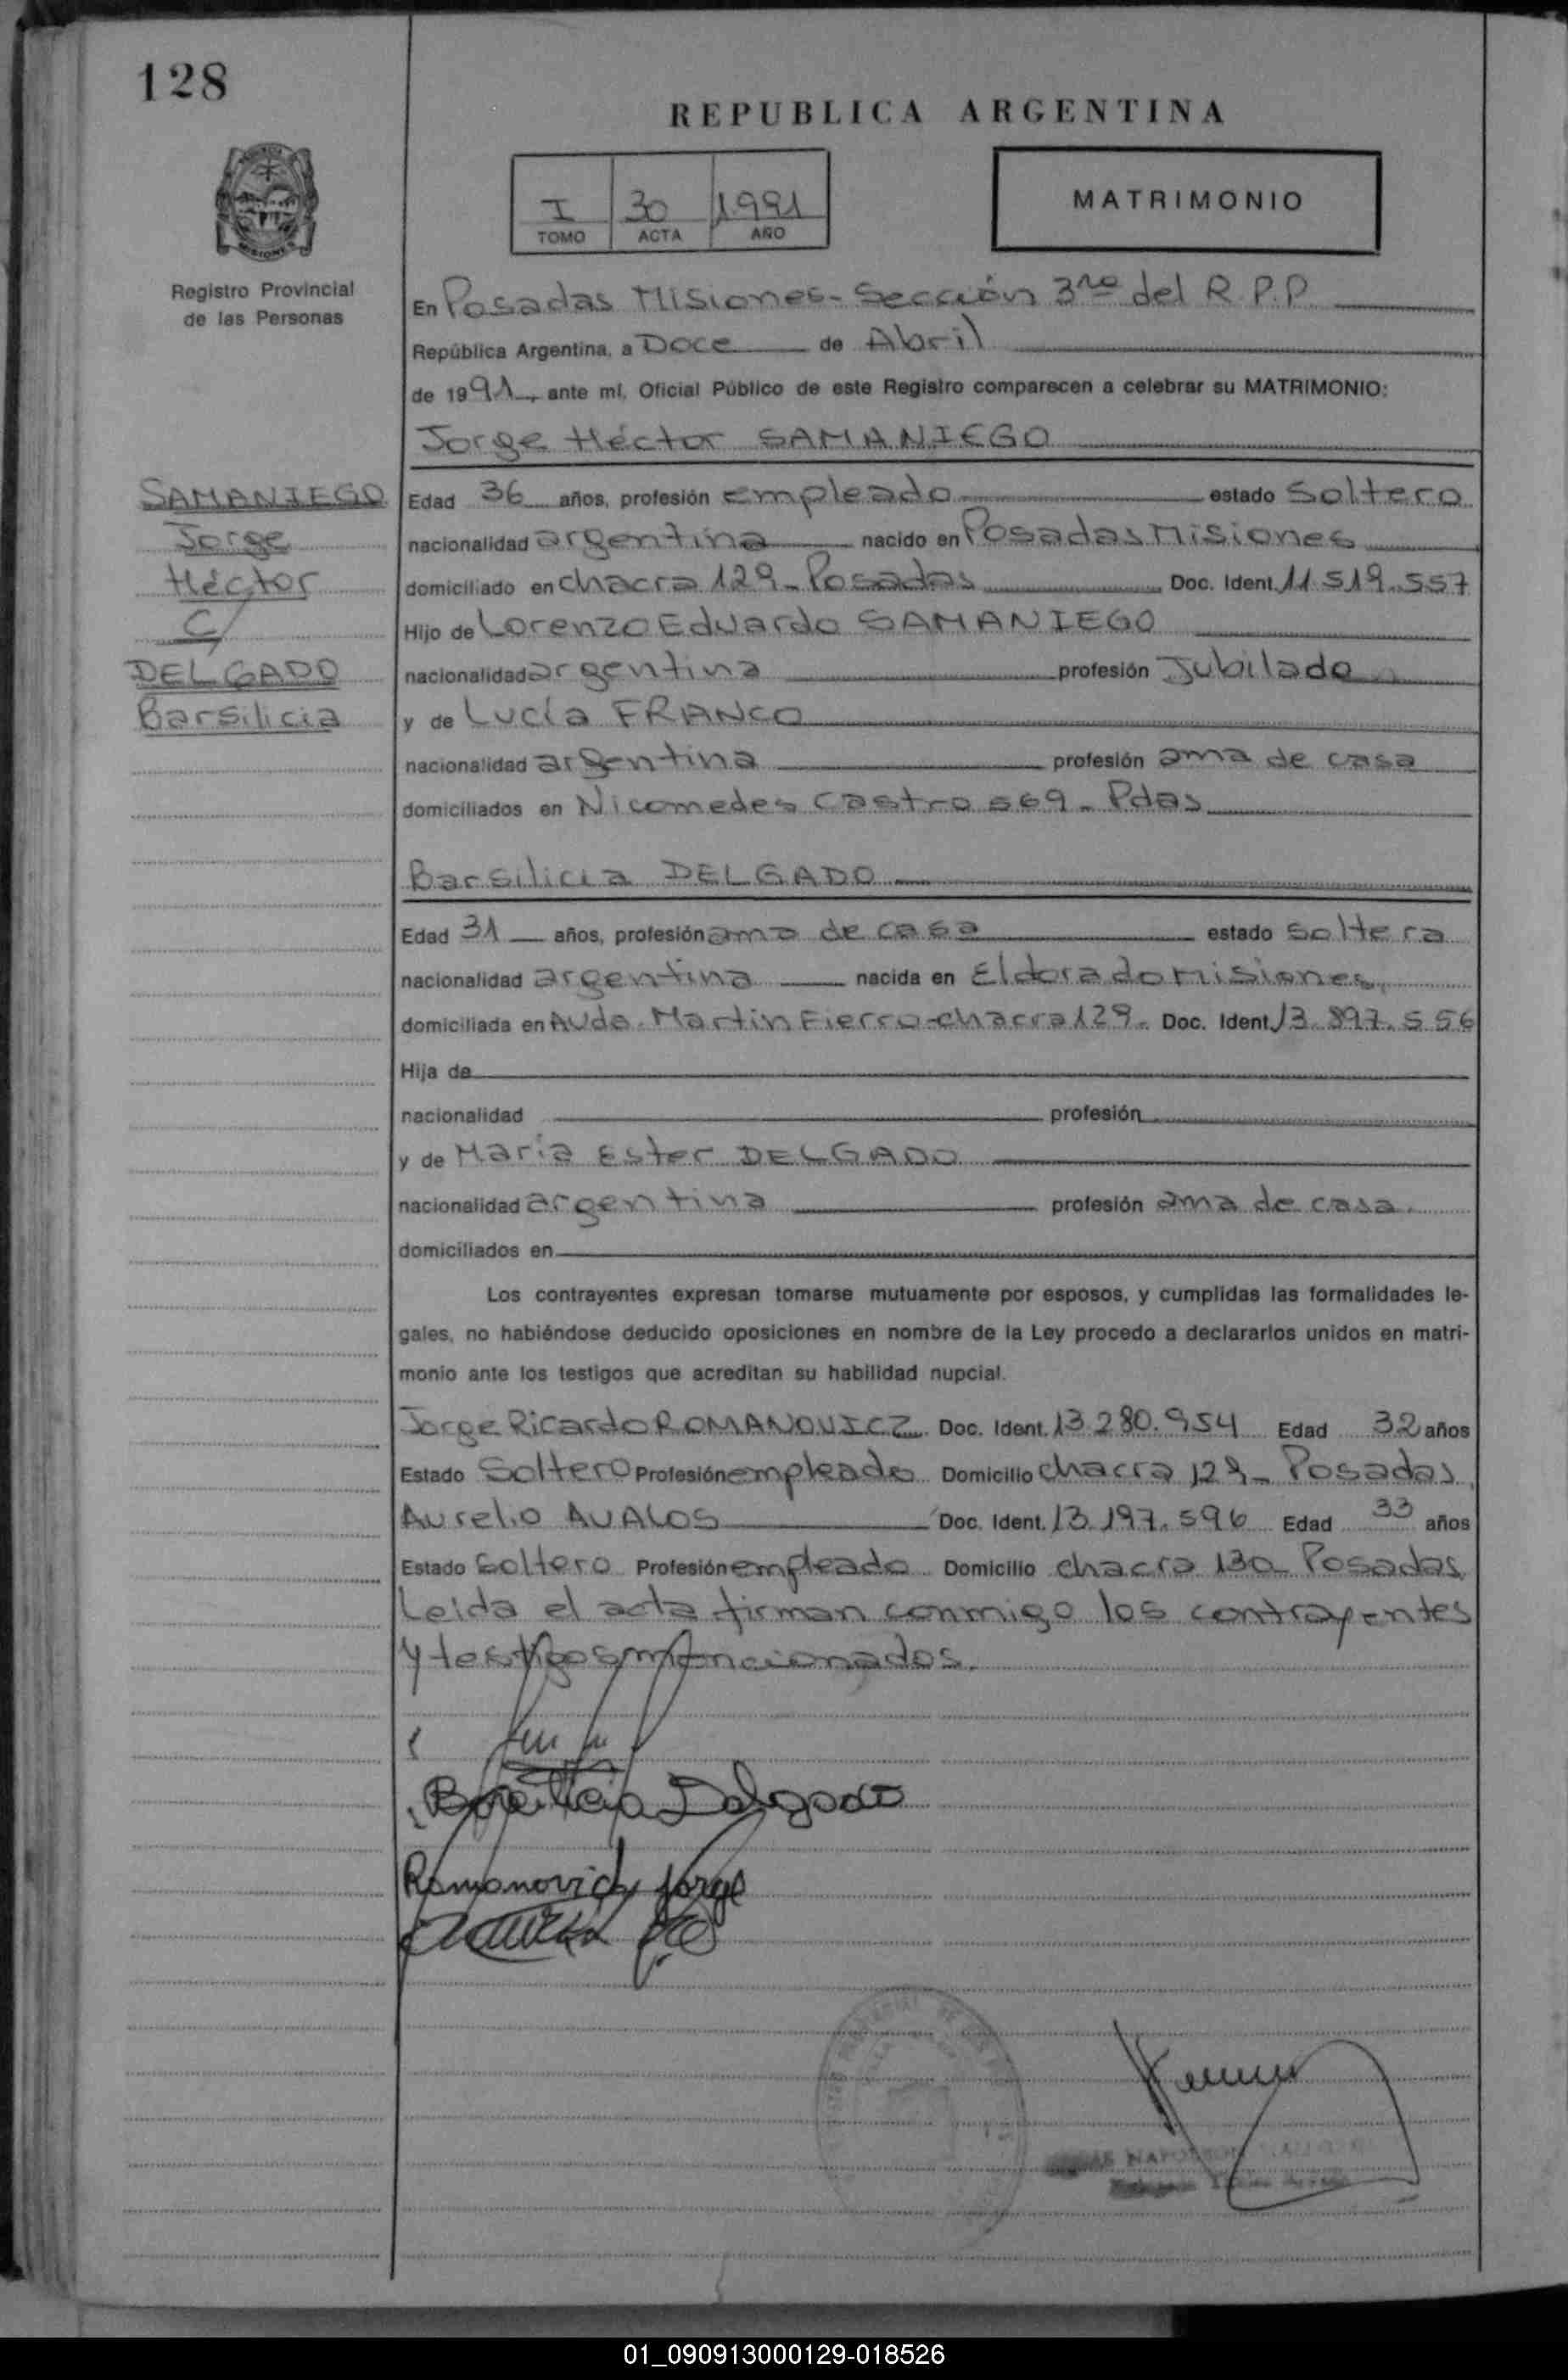 128
REPUBLICA ARGENTINA
I 30 1991
TOMO ACTA AÑO
MATRIMONIO
Registro Provincial
de las Personas
En Posadas Misiones - Sección 3ra del R.P.P
República Argentina, a Doce de Abril
de 1991, ante mí, Oficial Público de este Registro comparecen a celebrar su MATRIMONIO:
Jorge Héctor SAMANIEGO
SAMANIEGO
Jorge
Héctor
C/
DELGADO
Barsilicia
Edad 36 años, profesión empleado estado Soltero
nacionalidad argentina nacido en Posadas Misiones
domiciliado en chacra 129 - Posadas Doc. Ident. 11.519.557
Hijo de Lorenzo Eduardo SAMANIEGO
nacionalidad argentina profesión Jubilado
y de Lucía FRANCO
nacionalidad argentina profesión ama de casa
domiciliados en Nicomedes Castro 569 - Pdas
Barsilicia DELGADO
Edad 31 años, profesión ama de casa estado soltera
nacionalidad argentina nacida en Eldorado Misiones
domiciliada en Avda. Martin Fierro - chacra 129 - Doc. Ident. 13.897.556
Hija de
nacionalidad profesión
y de María Ester DELGADO
nacionalidad argentina profesión ama de casa
domiciliados en
Los contrayentes expresan tomarse mutuamente por esposos, y cumplidas las formalidades le-
gales, no habiéndose deducido oposiciones en nombre de la Ley procedo a declararlos unidos en matri-
monio ante los testigos que acreditan su habilidad nupcial.
Jorge Ricardo ROMANOVICZ Doc. Ident. 13.280.954 Edad 32 años
Estado Soltero Profesión empleado Domicilio chacra 129 - Posadas
Aurelio AVALOS Doc. Ident. 13.197.596 Edad 33 años
Estado soltero Profesión empleado Domicilio chacra 130 - Posadas
Leida el acta firman conmigo los contrayentes
y testigos mencionados.
Delgado
Romanovicz Jorge
01_090913000129-018526